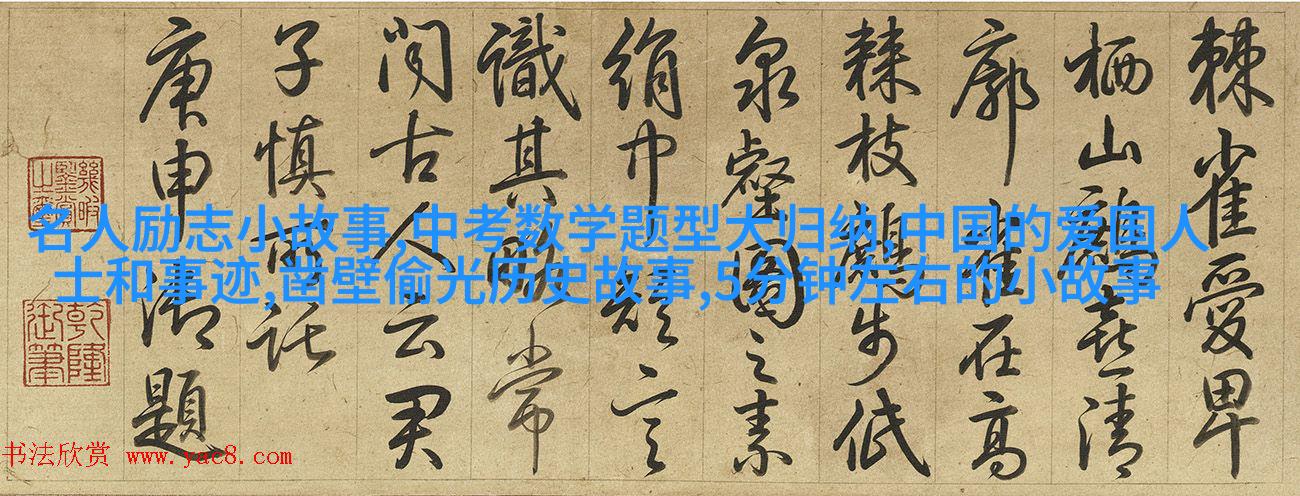 棘雀愛卑
栖山喜清
廓在高
棘枝步低
泉壑圖之素
絹巾題言
識其常
閒古人云君
子慎所託
庚申御題
乾隆御筆
名人励志小故事,中考数学题型大归纳,中国的爱国人
士和事迹,凿壁偷光历史故事,5分钟左右的小故事
书法欣赏 www.yac8.com